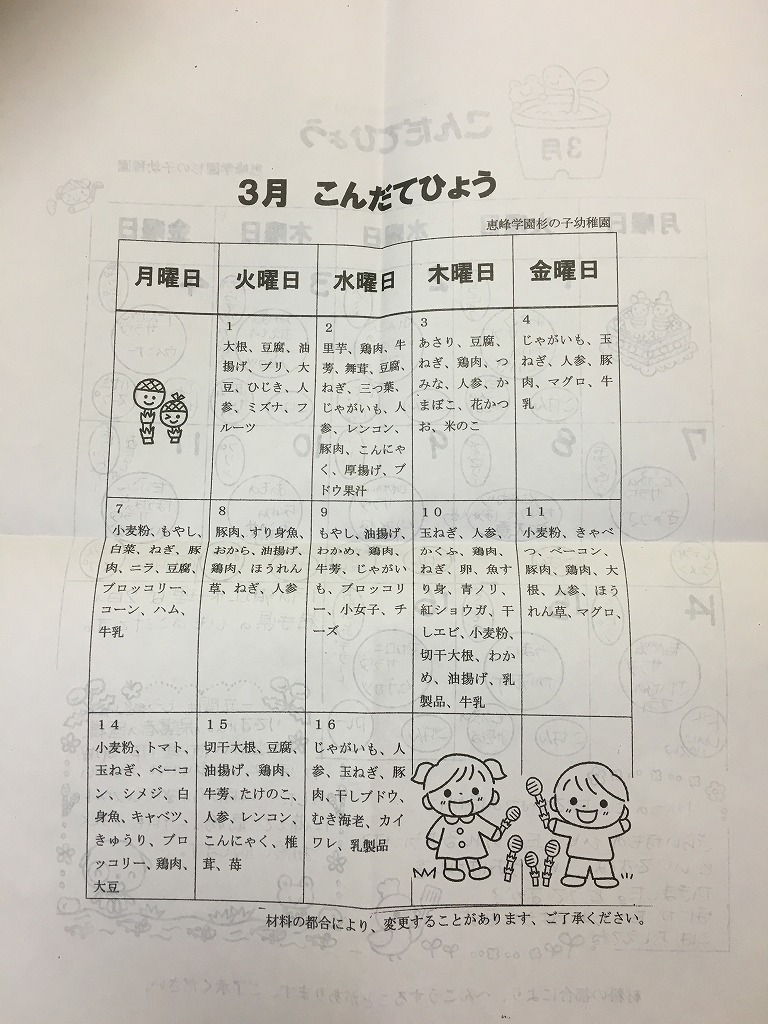 3月 こんだてひょう
恵峰学園杉の子幼稚園
月曜日 火曜日 水曜日 木曜日 金曜日
1
大根、豆腐、油
揚げ、ブリ、大
豆、ひじき、人
参、ミズナ、フ
ルーツ
2
里芋、鶏肉、牛
蒡、舞茸、豆腐、
ねぎ、三つ葉、
じゃがいも、人
参、レンコン、
豚肉、こんにゃ
く、厚揚げ、ブ
ドウ果汁
3
あさり、豆腐、
ねぎ、鶏肉、つ
みな、人参、か
まぼこ、花かつ
お、米のこ
4
じゃがいも、玉
ねぎ、人参、豚
肉、マグロ、牛
乳
7
小麦粉、もやし、
白菜、ねぎ、豚
肉、ニラ、豆腐、
ブロッコリー、
コーン、ハム、
牛乳
8
豚肉、すり身魚、
おから、油揚げ、
鶏肉、ほうれん
草、ねぎ、人参
9
もやし、油揚げ、
わかめ、鶏肉、
牛蒡、じゃがい
も、ブロッコリ
ー、小女子、チ
ーズ
10
玉ねぎ、人参、
かくふ、鶏肉、
ねぎ、卵、魚す
り身、青ノリ、
紅ショウガ、干
しエビ、小麦粉、
切干大根、わか
め、油揚げ、乳
製品、牛乳
11
小麦粉、きゃべ
つ、ベーコン、
豚肉、鶏肉、大
根、人参、ほう
れん草、マグロ、
14
小麦粉、トマト、
玉ねぎ、ベーコ
ン、シメジ、白
身魚、キャベツ、
きゅうり、ブロ
ッコリー、鶏肉、
大豆
15
切干大根、豆腐、
油揚げ、鶏肉、
牛蒡、たけのこ、
人参、レンコン、
こんにゃく、椎
茸、苺
16
じゃがいも、人
参、玉ねぎ、豚
肉、干しブドウ、
むき海老、カイ
ワレ、乳製品
材料の都合により、変更することがあります、ご了承ください。